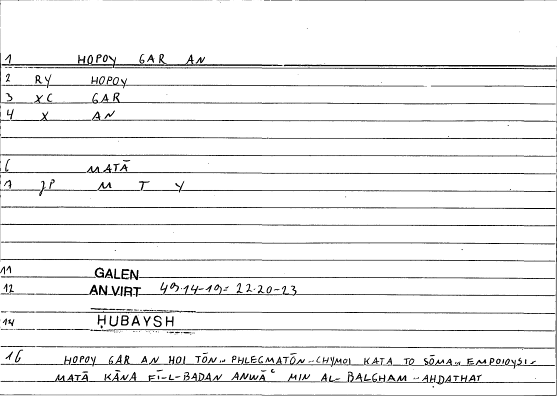 1 HOPOY GAR AN
2 RY HOPOY
3 XC GAR
4 X AN
6 MATĀ
7 JP M T Y
11 GALEN
12 AN VIRT 49.14-19= 22.20-23
14 ḤUBAYSH
16 HOPOY GAR AN HOI TŌN.. PHLEGMATŌN-CHYMOI KATA TO SŌMA.. EMPOIOYSI-
MATĀ KĀNA FĪ-L-BADAN ANWĀʿ MIN AL-BALGHAM-AḤDATHAT